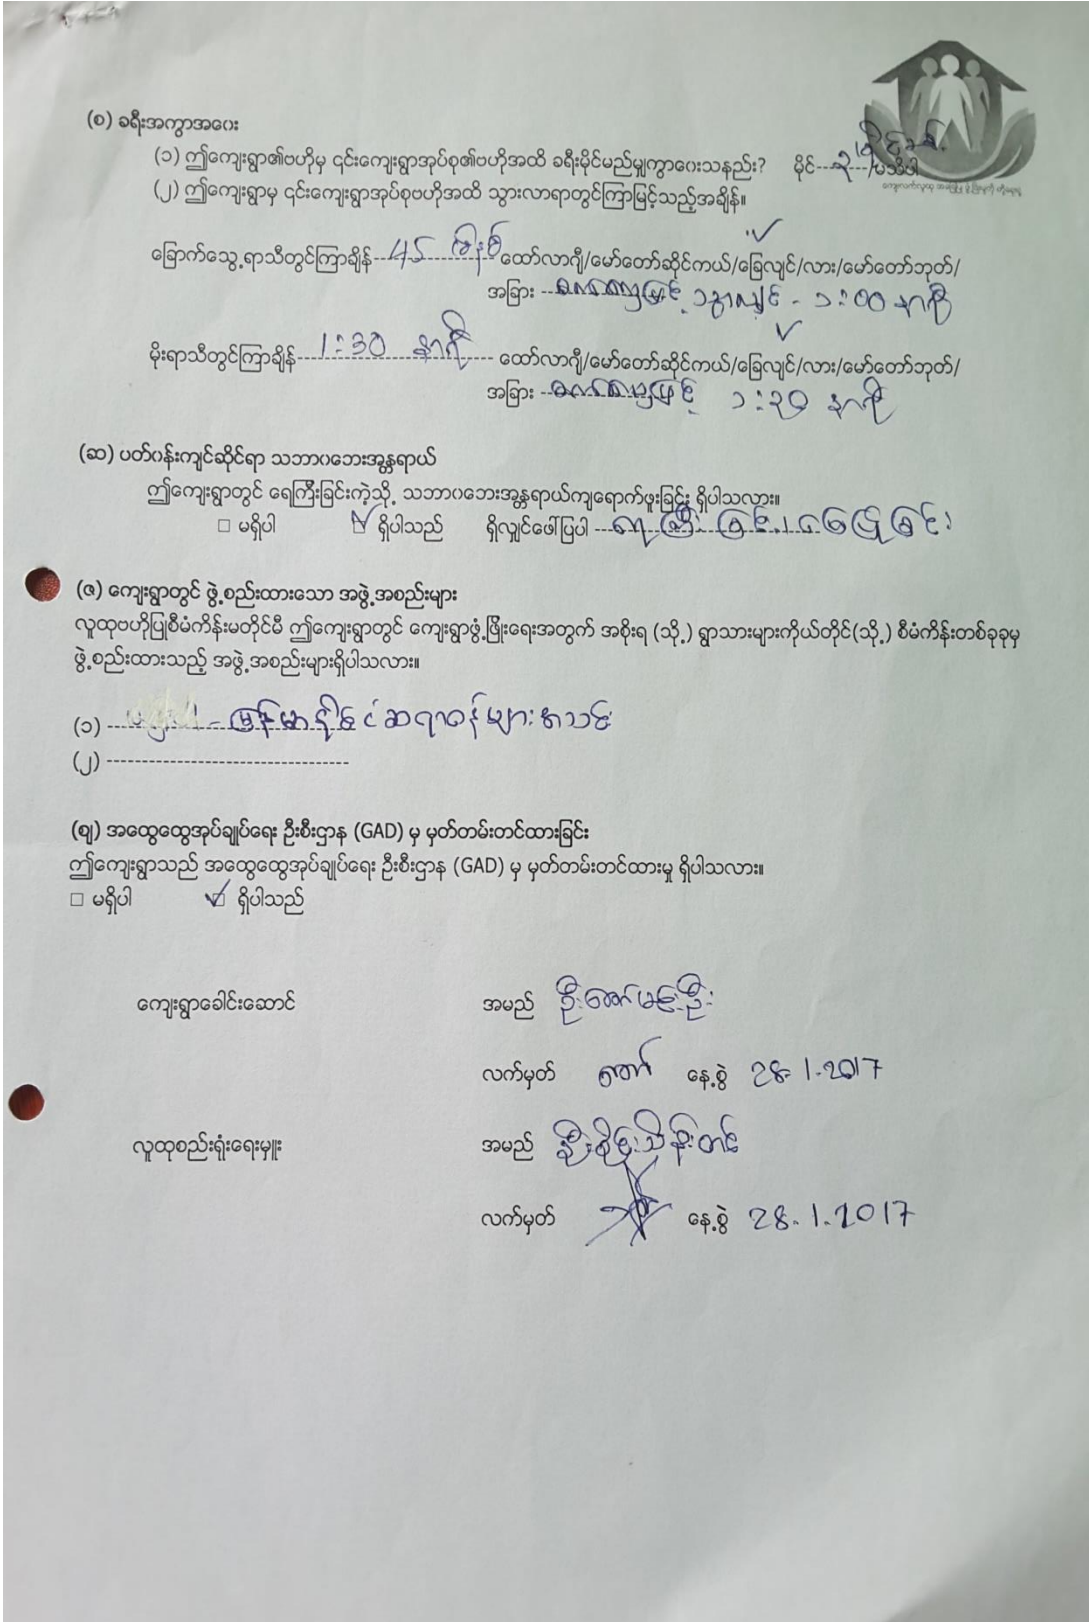 (စ) ခရီးအကွာအဝေး
(၁) ဤကျေးရွာ၏ဗဟိုမှ ၎င်းကျေးရွာအုပ်စု၏ဗဟိုအထိ ခရီးမိုင်မည်မျှကွာဝေးသနည်း? မိုင်------/မသိပါ
(၂) ဤကျေးရွာမှ ၎င်းကျေးရွာအုပ်စုဗဟိုအထိ သွားလာရာတွင်ကြာမြင့်သည့်အချိန်။
ခြောက်သွေ့ရာသီတွင်ကြာချိန်--45 မိနစ် ထော်လာဂျီ/မော်တော်ဆိုင်ကယ်/ခြေလျင်/လား/မော်တော်ဘုတ်/
အခြား -- ၁:၀၀ နာရီ
မိုးရာသီတွင်ကြာချိန်--1:30 နာရီ-- ထော်လာဂျီ/မော်တော်ဆိုင်ကယ်/ခြေလျင်/လား/မော်တော်ဘုတ်/
အခြား -- ၁:၃၀ နာရီ
(ဆ) ပတ်ဝန်းကျင်ဆိုင်ရာ သဘာဝဘေးအန္တရာယ်
ဤကျေးရွာတွင် ရေကြီးခြင်းကဲ့သို့ သဘာဝဘေးအန္တရာယ်ကျရောက်ဖူးခြင်း ရှိပါသလား။
□ မရှိပါ ☑ ရှိပါသည် ရှိလျှင်ဖော်ပြပါ --ရေကြီးခြင်း၊ မြေပြိုခြင်း
(ဇ) ကျေးရွာတွင် ဖွဲ့စည်းထားသော အဖွဲ့အစည်းများ
လူထုဗဟိုပြုစီမံကိန်းမတိုင်မီ ဤကျေးရွာတွင် ကျေးရွာဖွံ့ဖြိုးရေးအတွက် အစိုးရ (သို့) ရွာသားများကိုယ်တိုင်(သို့) စီမံကိန်းတစ်ခုခုမှ
ဖွဲ့စည်းထားသည့် အဖွဲ့အစည်းများရှိပါသလား။
(၁) -- မြန်မာနိုင်ငံဆရာဝန်များအသင်း
(၂) ----------------------------------
(ဈ) အထွေထွေအုပ်ချုပ်ရေး ဦးစီးဌာန (GAD) မှ မှတ်တမ်းတင်ထားခြင်း
ဤကျေးရွာသည် အထွေထွေအုပ်ချုပ်ရေး ဦးစီးဌာန (GAD) မှ မှတ်တမ်းတင်ထားမှု ရှိပါသလား။
□ မရှိပါ ☑ ရှိပါသည်
ကျေးရွာခေါင်းဆောင် အမည်
လက်မှတ် နေ့စွဲ 28.1.2017
လူထုစည်းရုံးရေးမှူး အမည် ဦးစိုင်းသိန်းတင်
လက်မှတ် နေ့စွဲ 28.1.2017